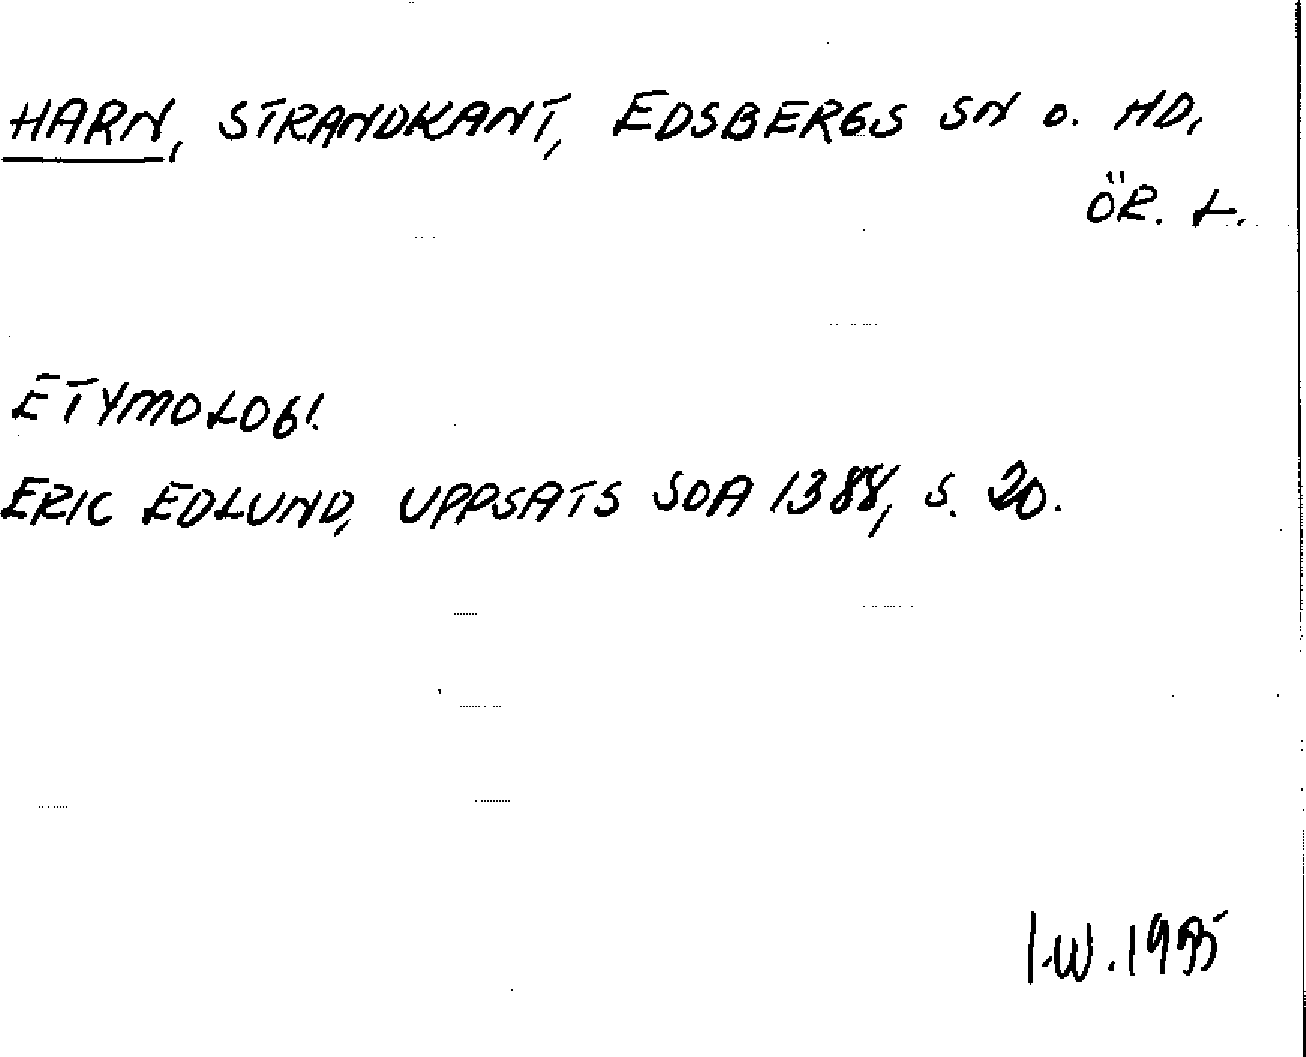 HARN, STRANDKANT, EDSBERGS SN O. HD,
ÖR. L.
ETYMOLOGI.
ERIC EDLUND, UPPSATS SOA 1388, S. 20.
I.W. 1995